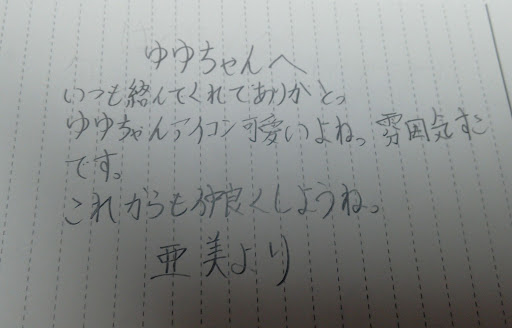 ゆゆちゃんへ
いつも絡んでくれてありがとっ
ゆゆちゃんアイコン可愛いよねっ 雰囲気すこ
です。
これからも仲良くしようねっ
亜美より